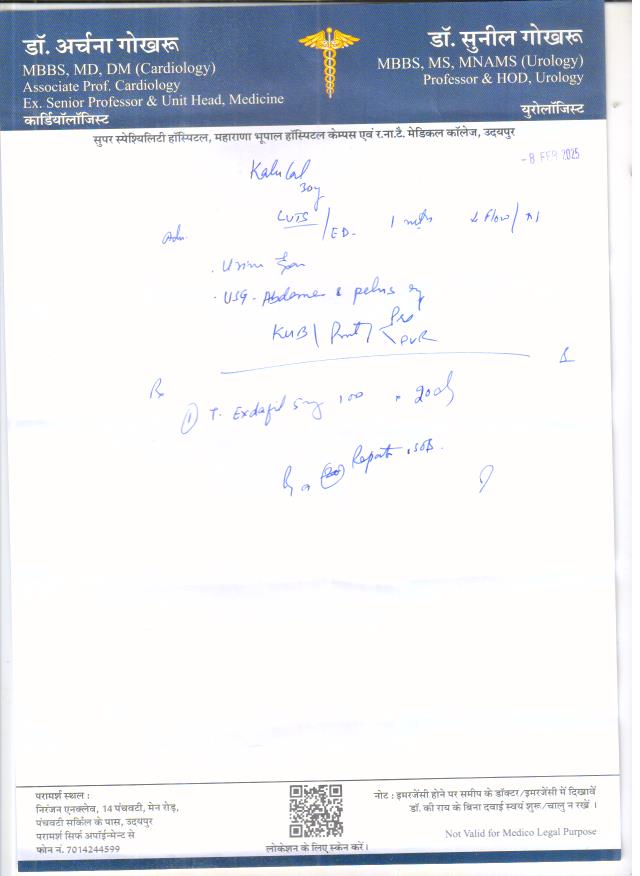 डॉ. अर्चना गोखरू
MBBS, MD, DM (Cardiology)
Associate Prof. Cardiology
Ex. Senior Professor & Unit Head, Medicine
कार्डियॉलॉजिस्ट
डॉ. सुनील गोखरू
MBBS, MS, MNAMS (Urology)
Professor & HOD, Urology
युरोलॉजिस्ट
सुपर स्पेश्यिलिटी हॉस्पिटल, महाराणा भूपाल हॉस्पिटल केम्पस एवं र.ना.टै. मेडिकल कॉलेज, उदयपुर
-8 FEB 2025
Kalu Lal
30y
LUTS / ED. 1 mths ↓ Flow /
Adv.
. Urine
. USG - Abdomen & pelvis
KUB / Prost / Pre
PVR
Rx
① T. Exdafil 5mg 100 x 20d
Reports
परामर्श स्थल :
निरंजन एनक्लेव, 14 पंचवटी, मेन रोड़,
पंचवटी सर्किल के पास, उदयपुर
परामर्श सिर्फ अपॉईन्मेन्ट से
फोन नं. 7014244599
लोकेशन के लिए स्केन करें।
नोट : इमरजेंसी होने पर समीप के डॉक्टर/इमरजेंसी में दिखावें
डॉ. की राय के बिना दवाई स्वयं शुरू/चालु न रखें ।
Not Valid for Medico Legal Purpose